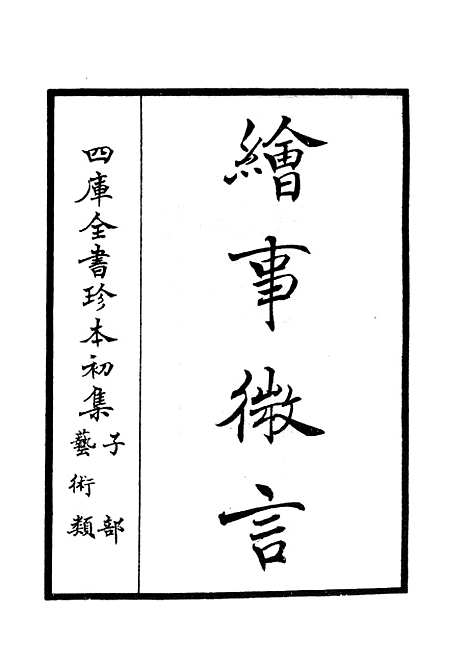 繪事微言
四庫全書珍本初集
子部
藝術類